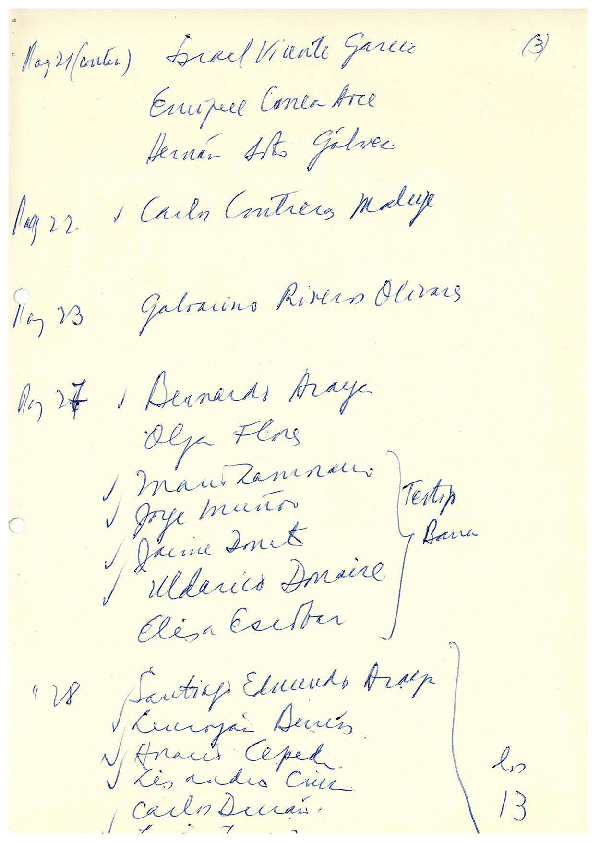 Pag 21 (contin) Israel Vicente García (3)
Enrique Correa Arce
Hernán Soto Gálvez
Pag 22 Carlos Contreras Maluje
Pag 23 Galvarino Riveros Olivares
Pag 27 Bernardo Araya
Olga Flores
Mario Zamorano
Jorge Muñoz Testigo
Jaime Donato Barra
Uldarico Donaire
Elisa Escobar
" 28 Santiago Edmundo Araya
Berríos
Horacio Cepeda
Lisandro Cruz los
Carlos Durán 13